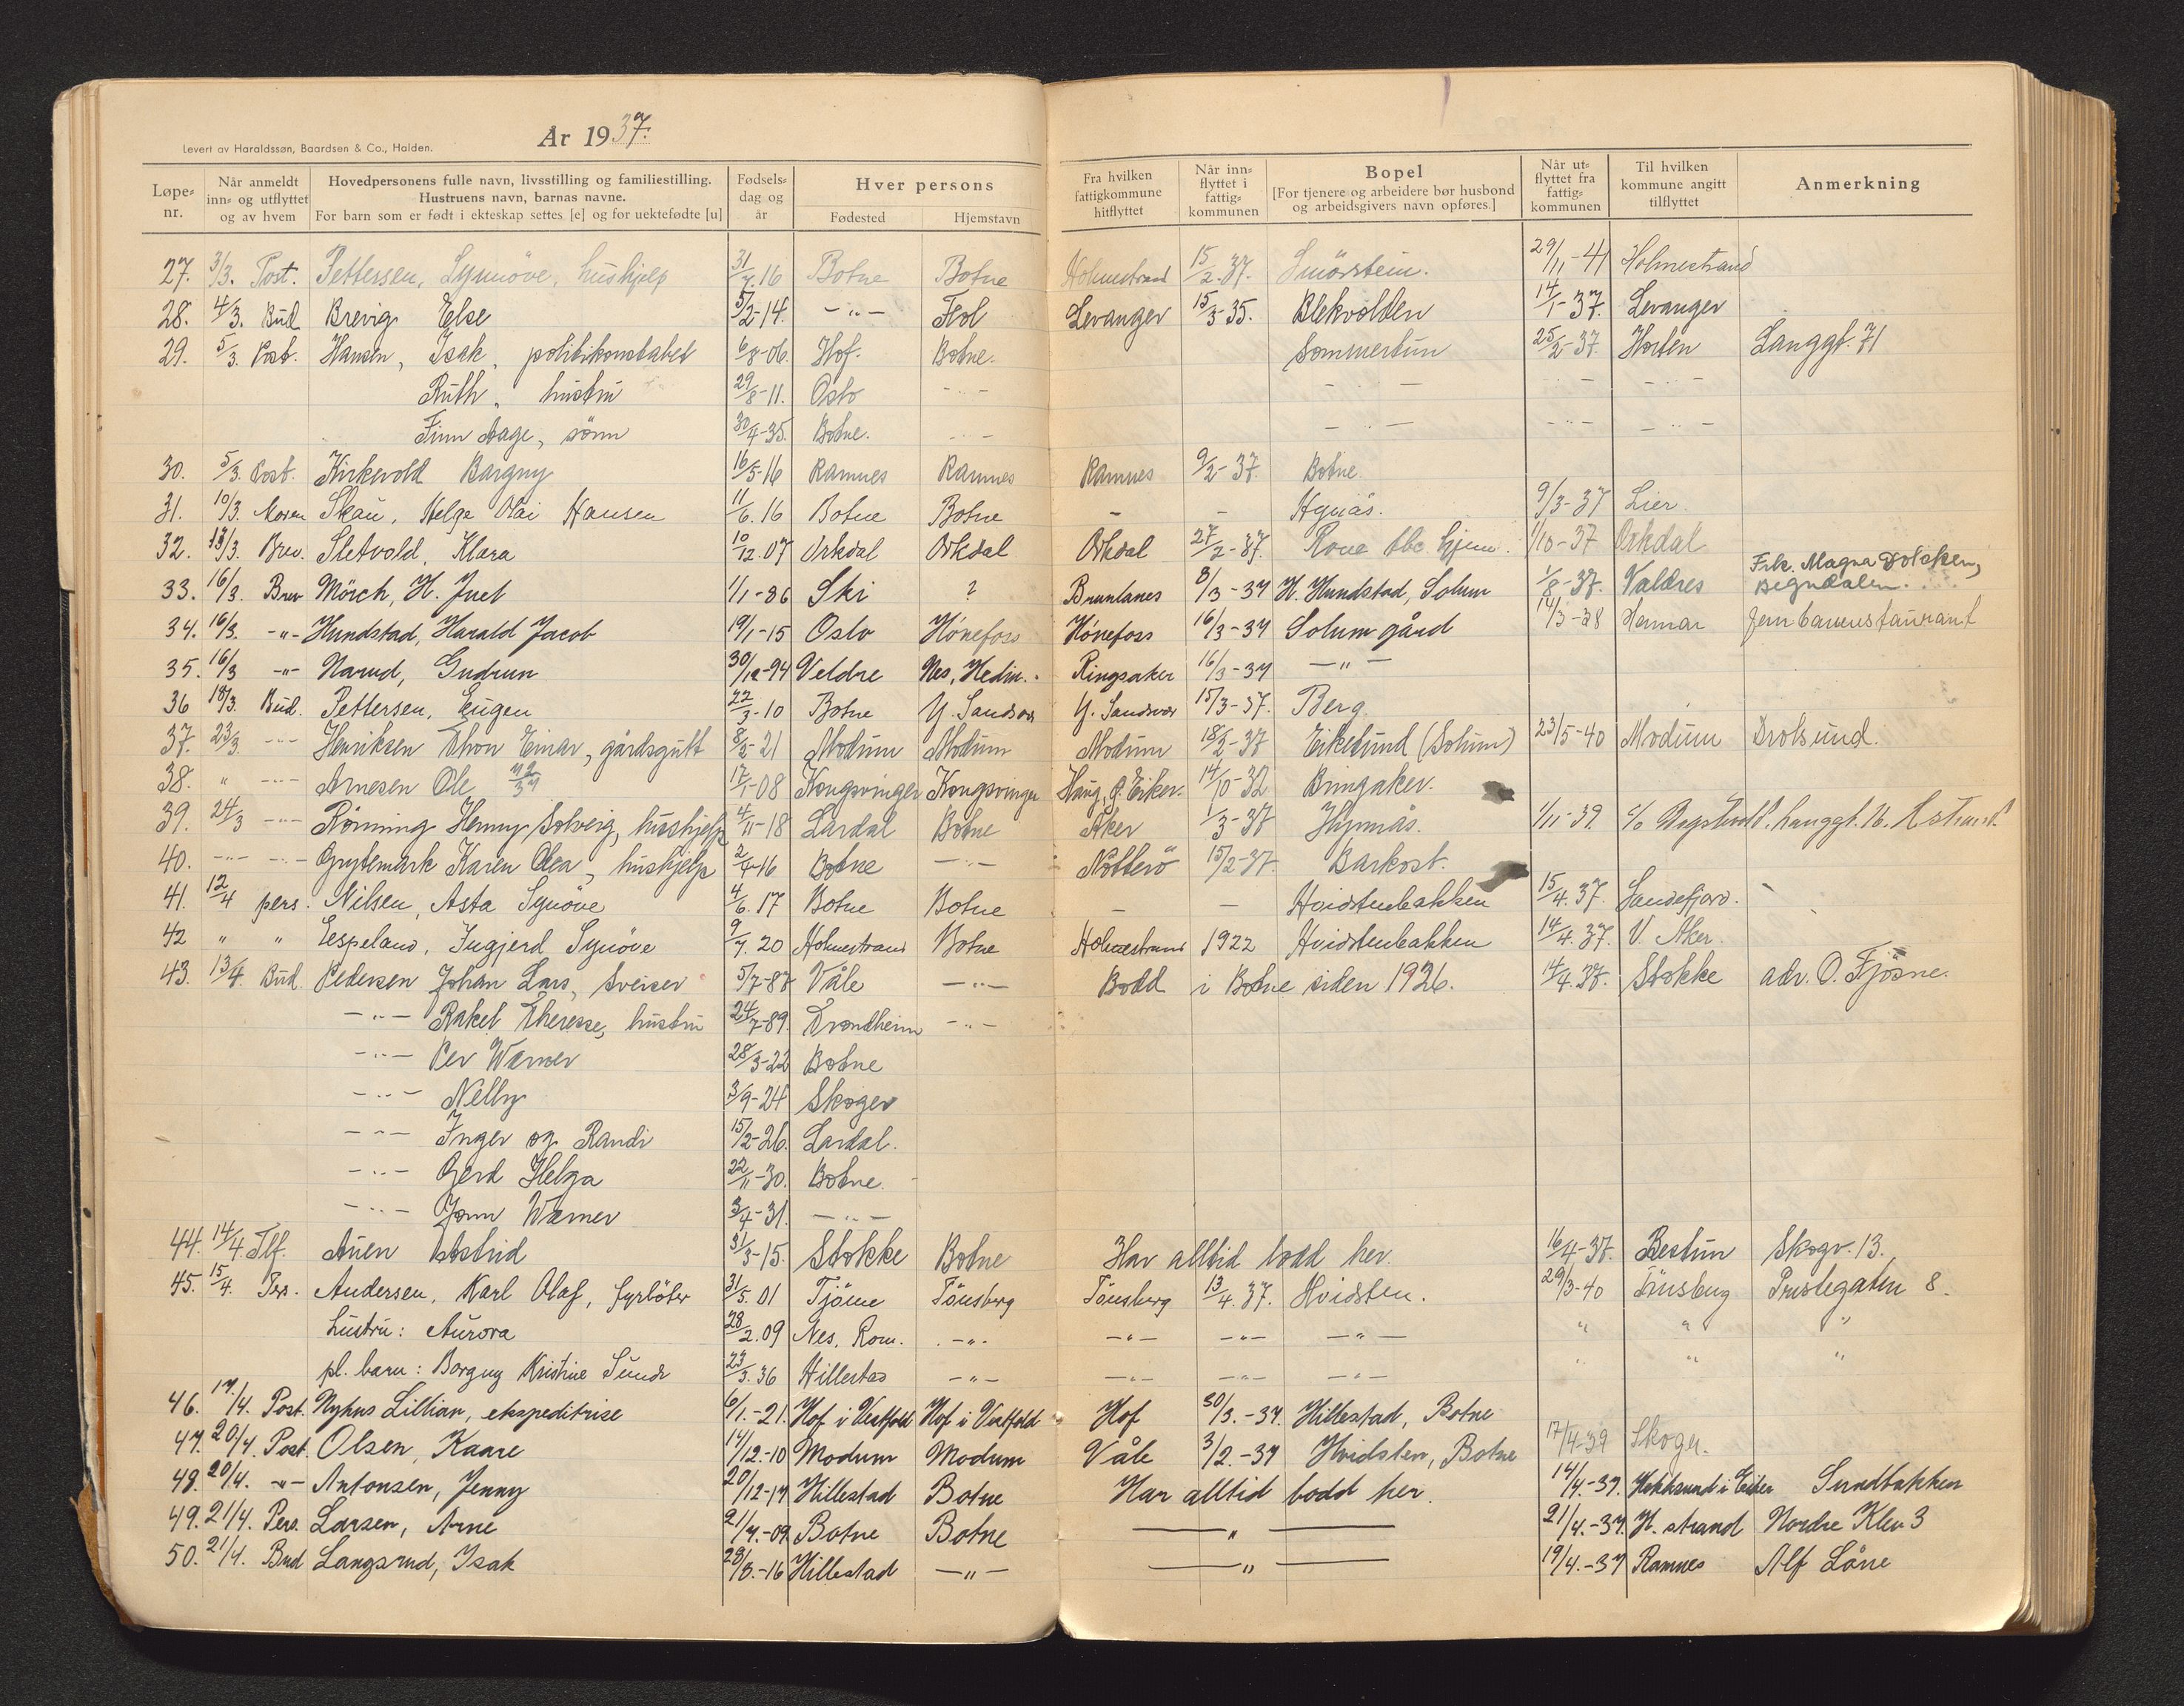 År 1937.
Levert av Haraldssøn, Baardsen & Co., Halden.
Løpe-nr. | Når anmeldt inn- og utflyttet og av hvem | Hovedpersonens fulle navn, livsstilling og familiestilling. Hustruens navn, barnas navne. For barn som er født i ekteskap settes [e] og for uektefødte [u] | Fødsels-dag og år | Hver persons Fødested | Hjemstavn | Fra hvilken fattigkommune hitflyttet | Når inn-flyttet i fattig-kommunen | Bopel [For tjenere og arbeidere bør husbond og arbeidsgivers navn opføres.] | Når ut-flyttet fra fattig-kommunen | Til hvilken kommune angitt tilflyttet | Anmerkning
27. 3/3. Post. Pettersen, Synnöve, hushjelp 31/7.16 Botne Botne Holmestrand 15/2.37. Smörstein. 29/11-41 Holmestrand
28. 4/3. Bud Brevig Else 5/2-14. -"- Levanger 15/3-35. Blekvolden 14/1-37. Levanger
29. 5/3. Post. Hansen, Isak, politikonstabel 6/8-06. Hof. Botne. Sommertun 25/2-37. Horten Langgt. 71
Ruth, hustru 29/8-11. Oslo -"- -"- -"- -"-
Finn Aage, sönn 30/4-35. Botne. -"- -"- -"- -"-
30. 5/3. Post. Kirkevold Bargny 16/5-16 Ramnes Ramnes Ramnes 9/2-37. Botne.
31. 10/3. Moren Skau, Helge Olai Hansen 11/6.16 Botne Botne - - Hynås. 9/3-37 Lier.
32. 13/3. Brev. Sletvold, Klara 10/12.07 Orkdal Orkdal Orkdal 27/2-37. Rove tbc. hjem. 1/10-37 Orkdal
33. 16/3. Brev Mörch, H. Juel 1/1-86 Ski ? Brunlanes 8/3-37 H. Hundstad, Solum 1/8-37. Valdres Frk. Magna Begndalen.
34. 16/3. -"- Hundstad, Harald Jacob 19/1-15 Oslo Hönefoss Hönefoss 16/3-37 Solum gård 14/3-38 Hamar Jernbanerestaurant
35. 16/3 -"- Narud, Gudrun 30/12-94 Veldre Nes, Hedm. Ringsaker 16/3-37 -"-
36 18/3. Bud. Pettersen, Eugen 22/3-10 Botne Y. Sandsvær Y. Sandsvær 15/3-37. Berg.
37. 23/3. -"- Henriksen Thon Einar, gårdsgutt 8/5-21 Modum Modum Modum 18/2-37 Eikelund (Solum) 23/5-40 Modum Drolsund.
38. " -"- Arnesen Ole 17/1-08 Kongsvinger Kongsvinger Haug, Ø. Eiker. 14/10-32 Bringaker.
39. 24/3 -"- Rönning Henny Solveig, hushjelp 4/11-18 Lardal Botne Aker 1/3-37 Hynnås. 1/11-39. c/o Langgt. 16.
40. -"- -"- Grytemark Karen Olea, hushjelp 2/4-16 Botne -"- Nötterö 15/2-37. Barkost.
41. 12/4 pers. Nilsen, Asta Synöve 4/6.17 Botne Botne - - Hvidstenbakken 15/4.37. Sandefjord.
42 " " Espeland, Ingjerd Synöve 9/7.20 Holmestrand Botne Holmestrand 1922 Hvidstenbakken 14/4.37. V. Aker.
43. 13/4. Bud. Pedersen Johan Lars, sveiser 5/7-87 Våle -"- Bodd i Botne siden 1926. 14/4.37. Stokke adr. O. Fjösne.
-"- Rakel Theresse, hustru 24/7-89. Trondheim -"-
-"- Per Werner 28/3-22 Botne
-"- Nelly 3/9-24 Skoger
-"- Inger og Randi 15/2-26. Lardal.
-"- Gerd Helga 22/11-30. Botne.
-"- Jonn Werner 3/4-31. -"-
44. 14/4. Tlf. Auen Astrid 31/3-15. Stokke Botne Har alltid bodd her. 16/4-37. Bestun Skogv. 13.
45. 15/4. Per. Andersen, Karl Olaf, fyrböter 31/5.01 Tjöme Tönsberg Tönsberg 13/4.37. Hvidsten. 29/3-40 Tönsberg Prestegaten 8.
hustru: Aurora 28/2.09 Nes, Rom. -"- -"- -"- -"- " " "
pl. barn: Borgny Kristine Sunds 23/3.36 Hillestad -"- -"- -"- -"- " " "
46. 17./4. Post. Nyhus Lillian, ekspeditrise 6/1.-21. Hof i Vestfold Hof i Vestfold Hof 30/3.-37. Hillestad, Botne
47. 20/4. Post. Olsen, Kaare 14/12.-10 Modum Modum Våle 3/2.-37 Hvidsten, Botne 17/4-39 Skoger.
48. 20/4. -"- Antonsen, Jenny 20/12-17 Hillestad Botne Har alltid bodd her. 14/4.-37. Hokksund i Eiker Sundbakken
49. 21/4. Pers. Larsen, Arne 21/4.-09 Botne Botne -"- 21/4.-37. H. strand Nordre Klev 3
50. 21/4. Bud Langsrud, Isak 28/8.-16 Hillestad -"- -"- 19/4.-37 Ramnes Alf Låne